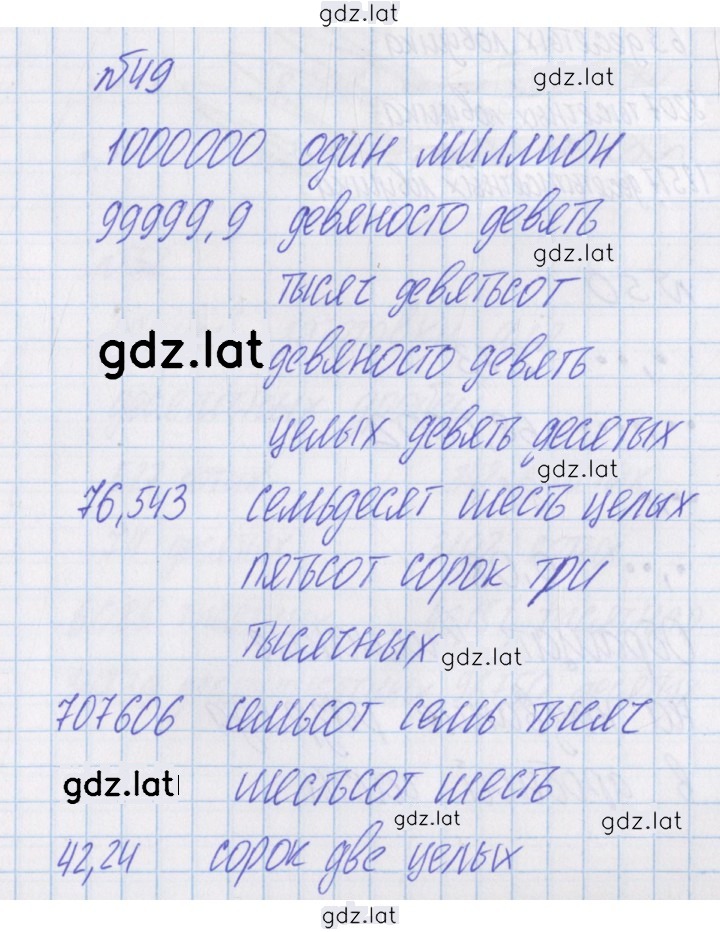 gdz.lat
№549
gdz.lat
1000000 один миллион
99999,9 девяносто девять
gdz.lat
тысяч девятьсот
gdz.lat девяносто девять
целых девять десятых
gdz.lat
76,543 семьдесят шесть целых
пятьсот сорок три
тысячных
gdz.lat
707606 семьсот семь тысяч
gdz.lat шестьсот шесть
gdz.lat
gdz.lat
42,24 сорок две целых
gdz.lat